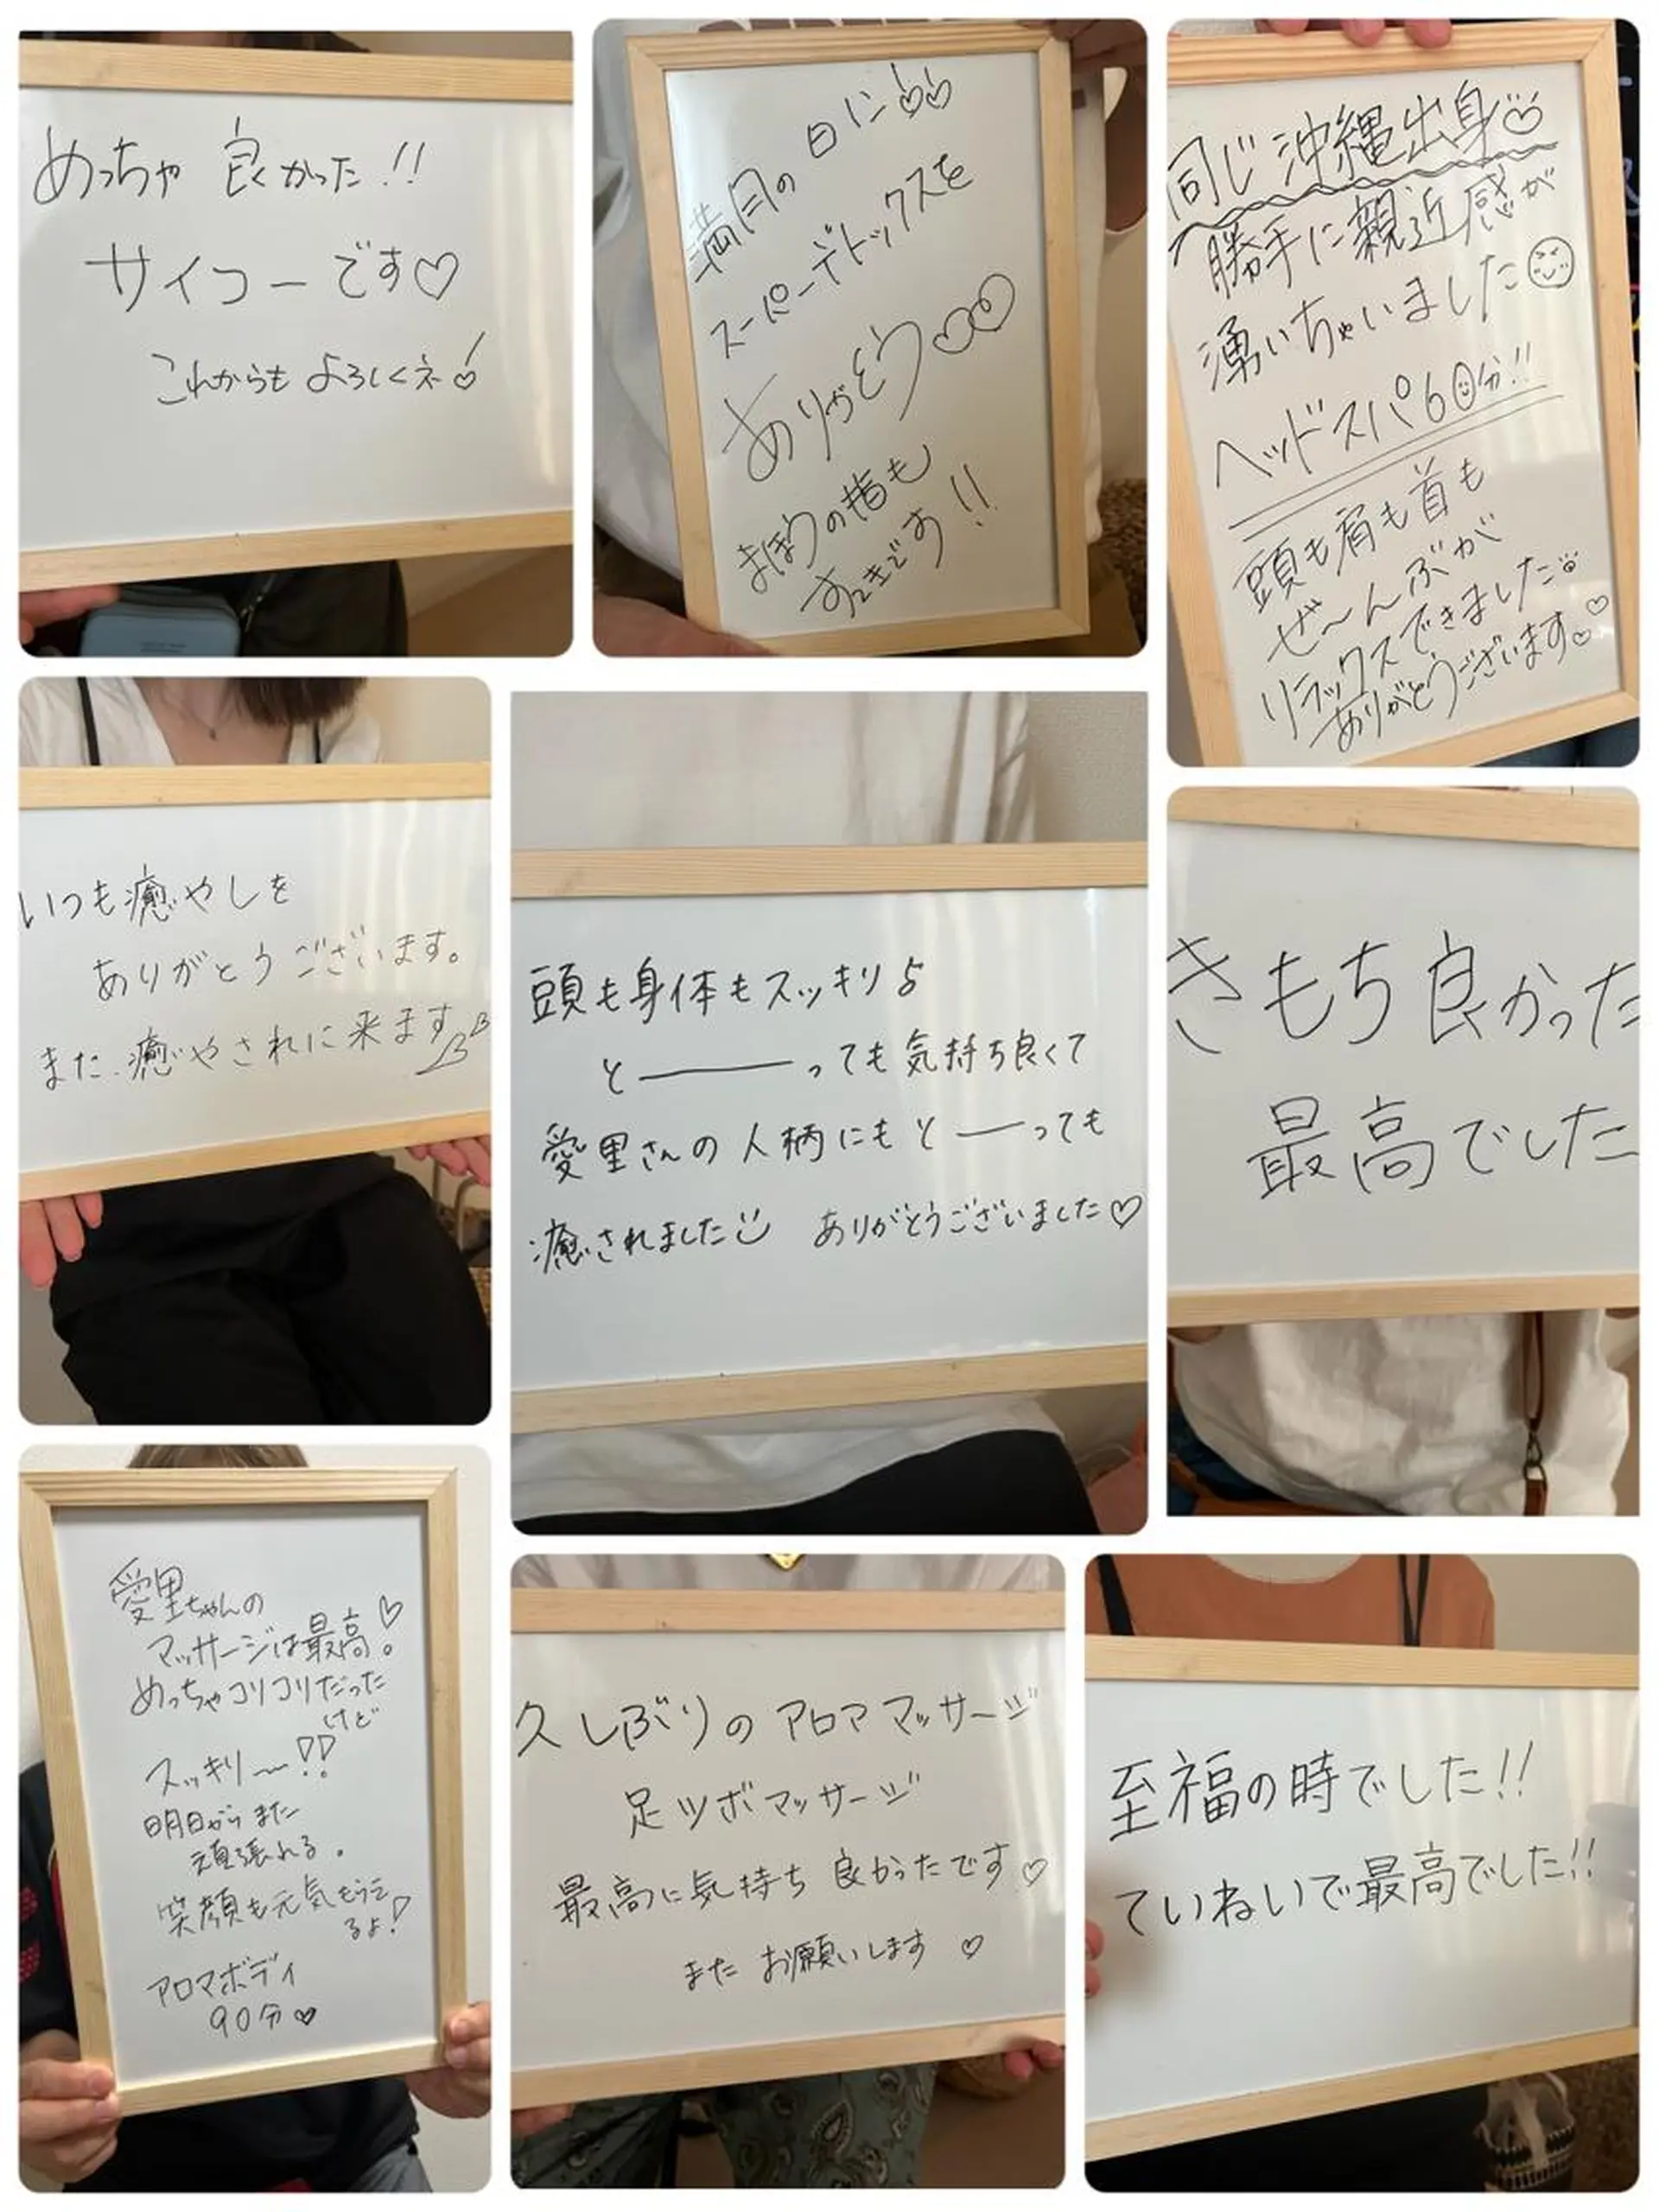 めっちゃ 良かった!!
サイコーです♡
これからも よろしくネ!
満月の 日に
スーパーデトックスを
ありがとう♡
まほうの指も
すてきです!!
同じ沖縄出身♡
勝手に親近感が
湧いちゃいました
ヘッドスパ60分!!
頭も肩も首も
ぜ〜んぶが
リラックスできました
ありがとうございます♡
いつも癒やしを
ありがとうございます。
また、癒やされに来ます
頭も身体もスッキリ♪
と――――っても気持ち良くて
愛里さんの人柄にもと――っても
癒されました ありがとうございました♡
きもち良かった
最高でした
愛里ちゃんの
マッサージは最高♡。
めっちゃコリコリだった
けど
スッキリ〜!!
明日からまた
頑張れる。
笑顔も元気もらえ
るよ!
アロマボディ
90分♡
久しぶりのアロママッサージ
足ツボマッサージ
最高に気持ち良かったです♡
また お願いします ♡
至福の時でした!!
ていねいで最高でした!!